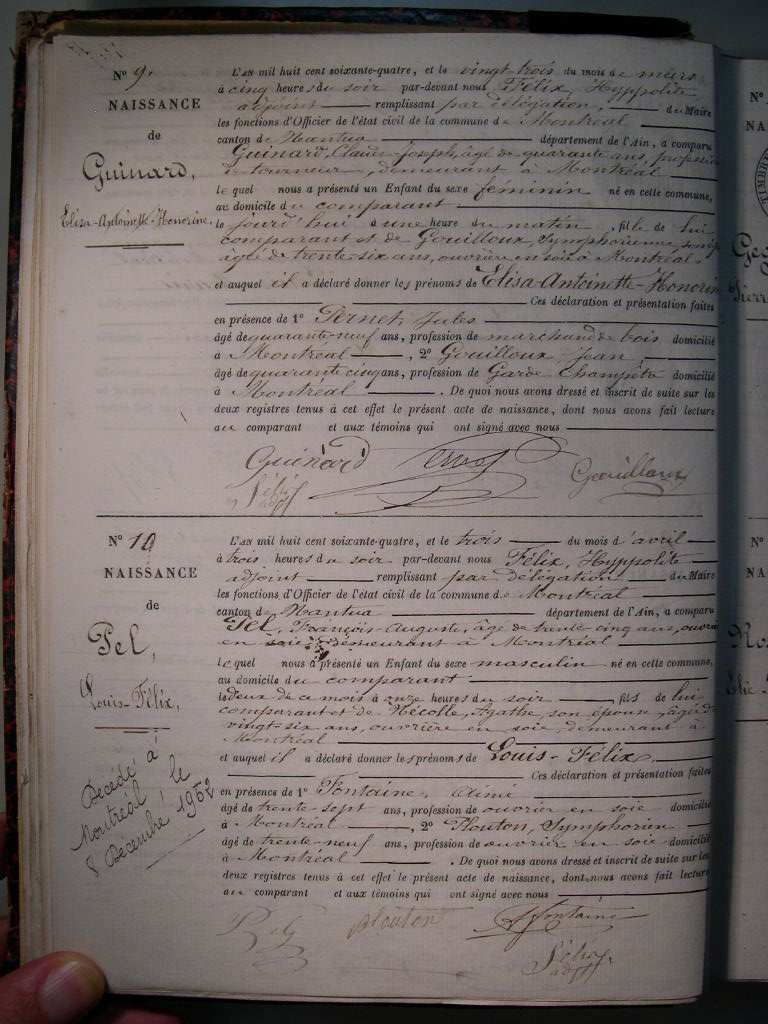 N° 9.
NAISSANCE
de
Guinard,
Elisa-Antoinette-Honorine.
L'AN mil huit cent soixante-quatre, et le vingt trois du mois de mars
à cinq heures du soir par-devant nous Félix, Hyppolite
adjoint remplissant par délégation, du Maire
les fonctions d'Officier de l'état civil de la commune de Montréal
canton de Nantua département de l'Ain, a comparu
Guinard, Claude-Joseph, âgé de quarante ans, profession
de tourneur, demeurant à Montréal
lequel nous a présenté un Enfant du sexe féminin né en cette commune,
au domicile du comparant
le jourd'hui à une heure du matin, fille de lui
comparant et de Gouilloux, Symphorienne, son
âgée de trente-six ans, ouvrière en soie à Montréal.
et auquel il a déclaré donner les prénoms de Elisa-Antoinette-Honorin
Ces déclaration et présentation faites
en présence de 1° Pernet, Jules
âgé de quarante-neuf ans, profession de marchand de bois domicilié
à Montréal, 2° Gouilloux, Jean,
âgé de quarante cinq ans, profession de Garde Champêtre domicilié
à Montréal. De quoi nous avons dressé et inscrit de suite sur les
deux registres tenus à cet effet le présent acte de naissance, dont nous avons fait lecture
au comparant et aux témoins qui ont signé avec nous
Guinard
Gouilloux
Félix
adj
N° 10
NAISSANCE
de
Pel,
Louis-Félix,
Décédé à
Montréal le
8 Décembre 195
L'AN mil huit cent soixante-quatre, et le trois du mois d'avril
à trois heures du soir par-devant nous Félix, Hyppolite
adjoint remplissant par délégation du Maire
les fonctions d'Officier de l'état civil de la commune de Montréal
canton de Nantua département de l'Ain, a comparu
Pel, François-Auguste, âgé de trente cinq ans, ouvrier
en soie, demeurant à Montréal
lequel nous a présenté un Enfant du sexe masculin né en cette commune,
au domicile du comparant
le deux de ce mois à onze heures du soir, fils de lui
comparant et de Agathe, son épouse, âgée de
vingt-six ans, ouvrière en soie, demeurant à
Montréal
et auquel il a déclaré donner les prénoms de Louis-Félix
Ces déclaration et présentation faites
en présence de 1° Fontaine, Aimé
âgé de trente-sept ans, profession de ouvrier en soie domicilié
à Montréal, 2° Plouton, Symphorien
âgé de trente-neuf ans, profession de ouvrier en soie domicilié
à Montréal. De quoi nous avons dressé et inscrit de suite sur les
deux registres tenus à cet effet le présent acte de naissance, dont nous avons fait lecture
au comparant et aux témoins qui ont signé avec nous
Pel
Plouton
Fontaine
Félix
adj